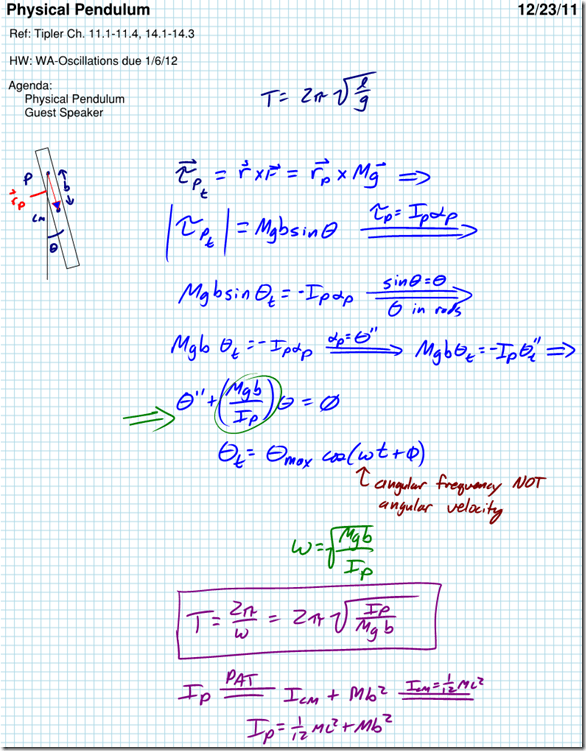 Physical Pendulum 12/23/11
Ref: Tipler Ch. 11.1-11.4, 14.1-14.3
HW: WA-Oscillations due 1/6/12
Agenda:
Physical Pendulum
Guest Speaker
T = 2π√(l/g)
P
b
r⃗p
cm
θ
τ⃗Pt = r⃗ × F⃗ = r⃗p × Mg⃗ ⟹
|τ⃗Pt| = Mgb sinθ τp = Ipαp ⟹
Mgb sinθt = -Ipαp sinθ=θ ⟹ θ in rads
Mgb θt = -Ipαp αp=θ'' ⟹ Mgbθt = -Ipθt'' ⟹
⟹ θ'' + (Mgb/Ip)θ = ∅
θt = θmax cos(ωt+ϕ)
↑ angular frequency NOT
angular velocity
ω = √(Mgb/Ip)
T = 2π/ω = 2π√(Ip/Mgb)
Ip PAT Icm + Mb² Icm=1/12 ML²
Ip = 1/12 ML² + Mb²